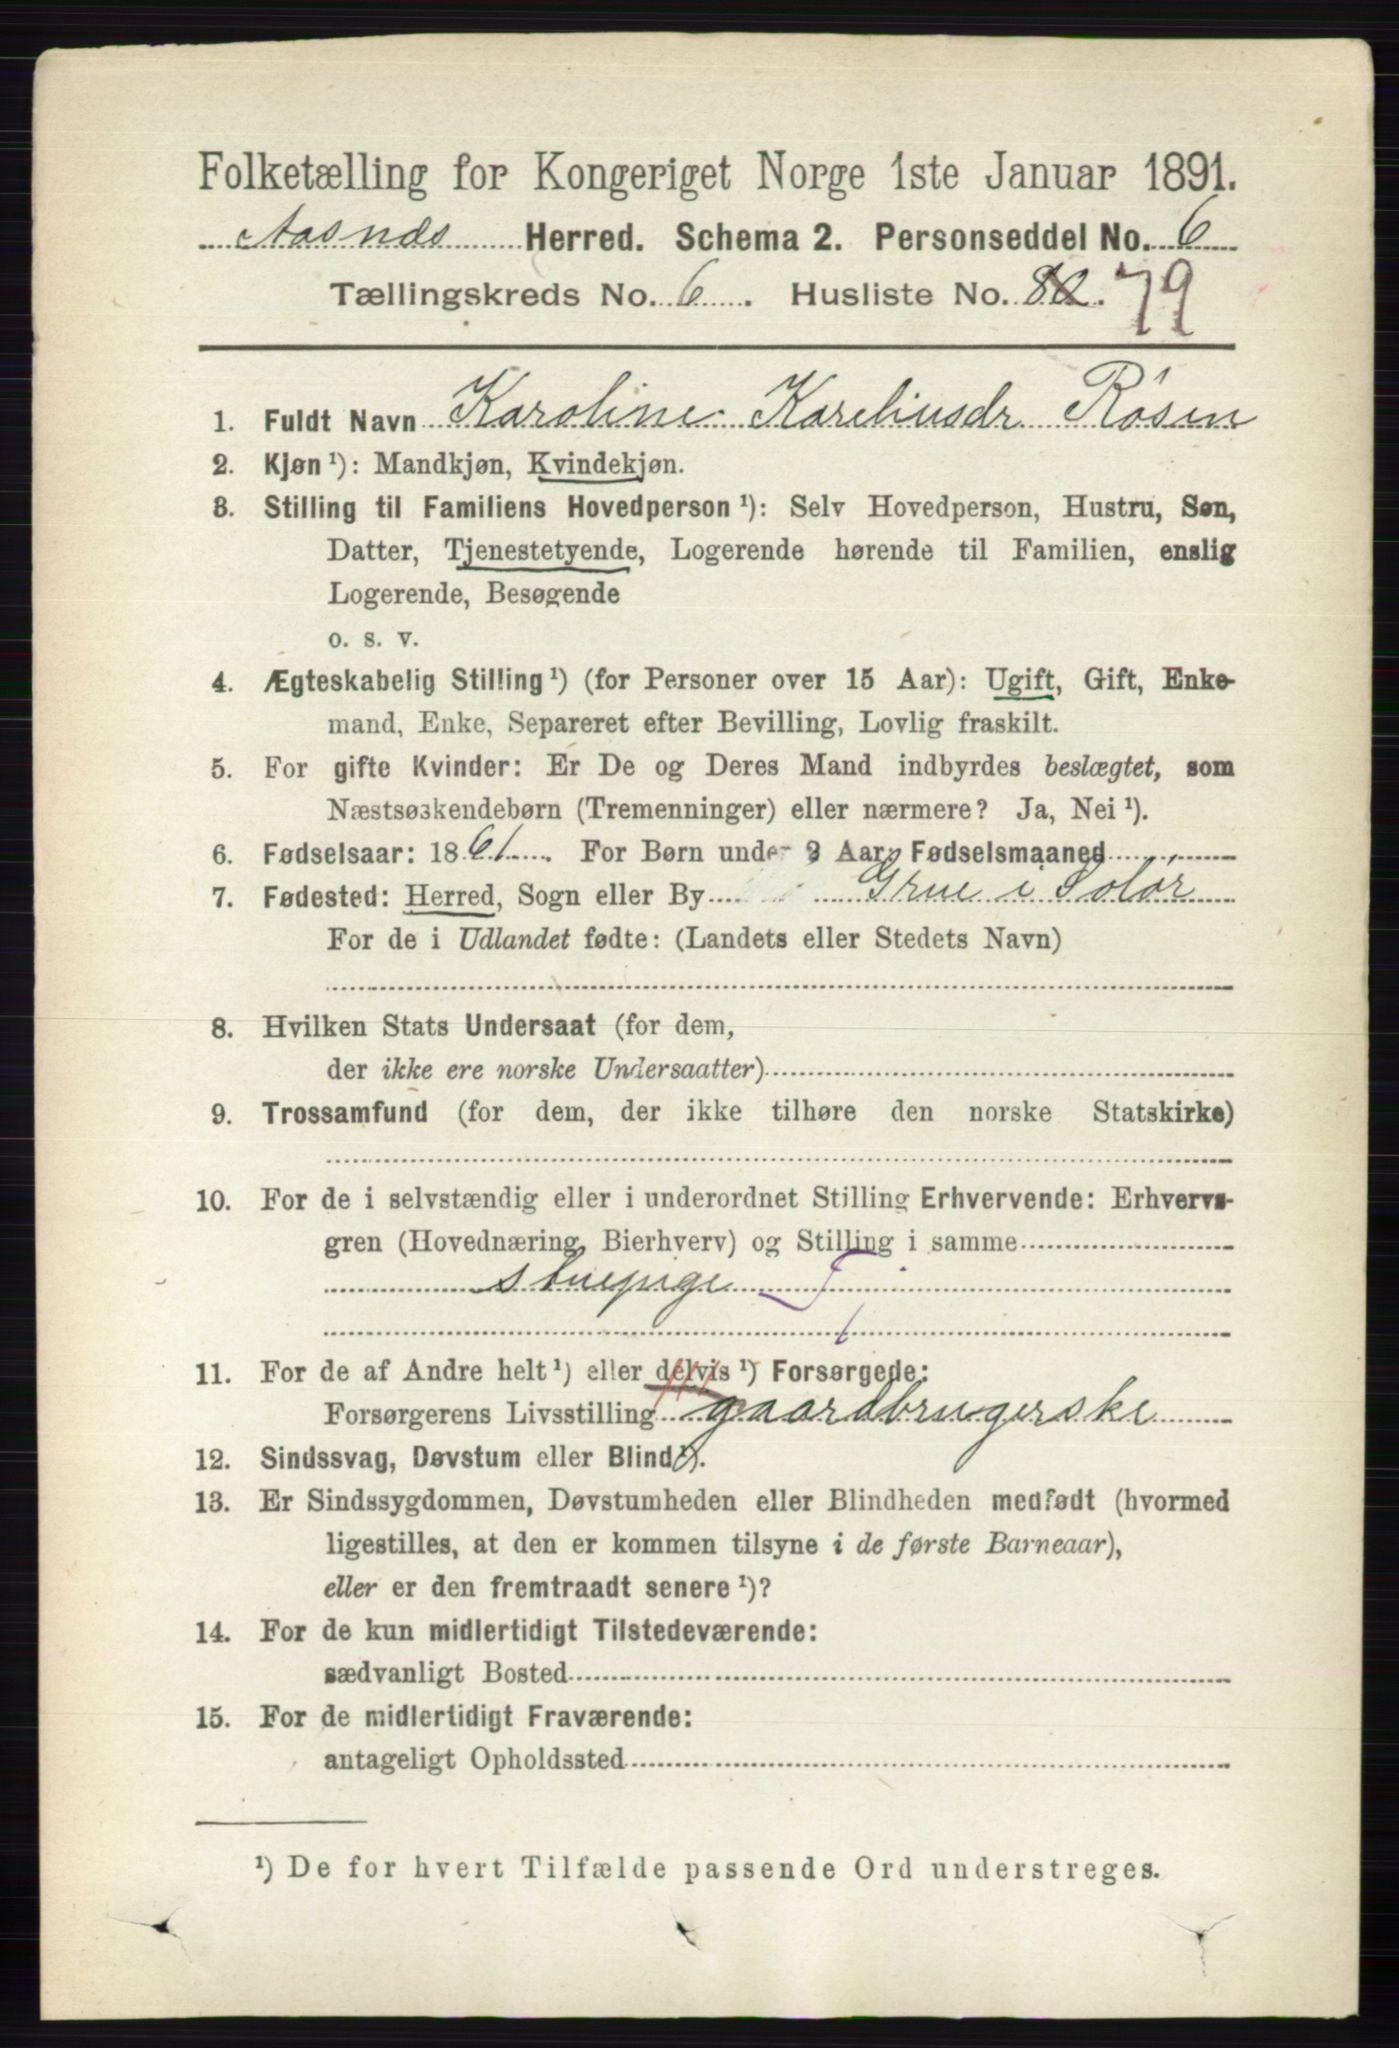 Folketælling for Kongeriget Norge 1ste Januar 1891.
Aasnæs Herred. Schema 2. Personseddel No. 6
Tællingskreds No. 6. Husliste No. 80. 79
1. Fuldt Navn Karoline Kareliusdr Rósen
2. Kjøn ¹): Mandkjøn, Kvindekjøn.
3. Stilling til Familiens Hovedperson ¹): Selv Hovedperson, Hustru, Søn,
Datter, Tjenestetyende, Logerende hørende til Familien, enslig
Logerende, Besøgende
o. s. v.
4. Ægteskabelig Stilling ¹) (for Personer over 15 Aar): Ugift, Gift, Enke-
mand, Enke, Separeret efter Bevilling, Lovlig fraskilt.
5. For gifte Kvinder: Er De og Deres Mand indbyrdes beslægtet, som
Næstsøskendebørn (Tremenninger) eller nærmere? Ja, Nei ¹).
6. Fødselsaar: 1861. For Børn under 2 Aar, Fødselsmaaned
7. Fødested: Herred, Sogn eller By Grue i Solór
For de i Udlandet fødte: (Landets eller Stedets Navn)
8. Hvilken Stats Undersaat (for dem,
der ikke ere norske Undersaatter)
9. Trossamfund (for dem, der ikke tilhøre den norske Statskirke)
10. For de i selvstændig eller i underordnet Stilling Erhvervende: Erhvervs-
gren (Hovednæring, Bierhverv) og Stilling i samme
stuepige T
11. For de af Andre helt ¹) eller delvis ¹) Forsørgede:
Forsørgerens Livsstilling gaardbrugerske
12. Sindssvag, Døvstum eller Blind ¹).
13. Er Sindssygdommen, Døvstumheden eller Blindheden medfødt (hvormed
ligestilles, at den er kommen tilsyne i de første Barneaar),
eller er den fremtraadt senere ¹)?
14. For de kun midlertidigt Tilstedeværende:
sædvanligt Bosted
15. For de midlertidigt Fraværende:
antageligt Opholdssted
¹) De for hvert Tilfælde passende Ord understreges.